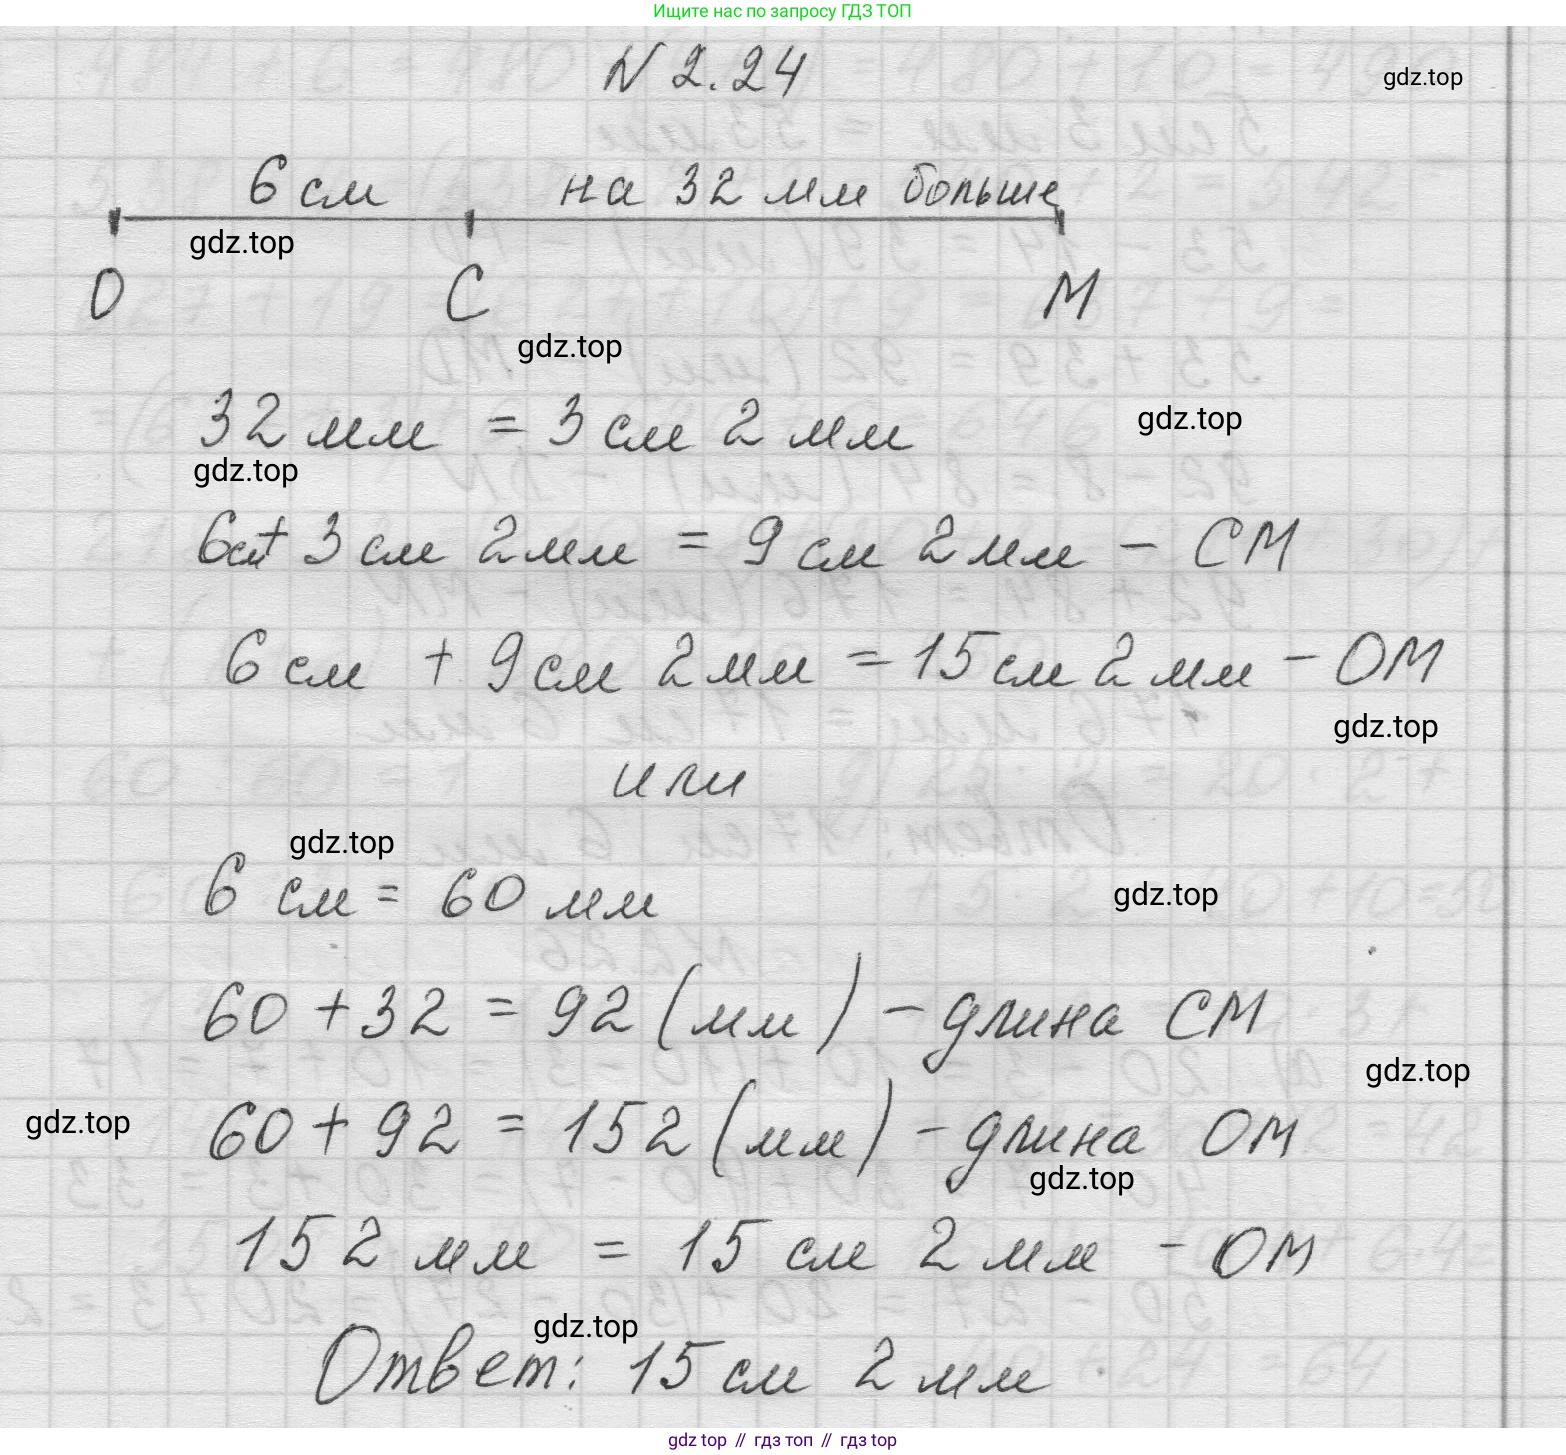 Ищите нас по запросу ГДЗ ТОП
N 2.24
gdz.top
6 см на 32 мм больше
gdz.top
O C M
gdz.top
32 мм = 3 см 2 мм
gdz.top
gdz.top
6см+ 3 см 2 мм = 9 см 2 мм - СМ
6 см + 9 см 2 мм = 15 см 2 мм - ОМ
gdz.top
или
gdz.top
6 см = 60 мм
gdz.top
60 + 32 = 92 (мм) - длина СМ
gdz.top
60 + 92 = 152 (мм) - длина ОМ
gdz.top
gdz.top
152 мм = 15 см 2 мм - ОМ
gdz.top
Ответ: 15 см 2 мм
gdz top // гдз топ // gdz top